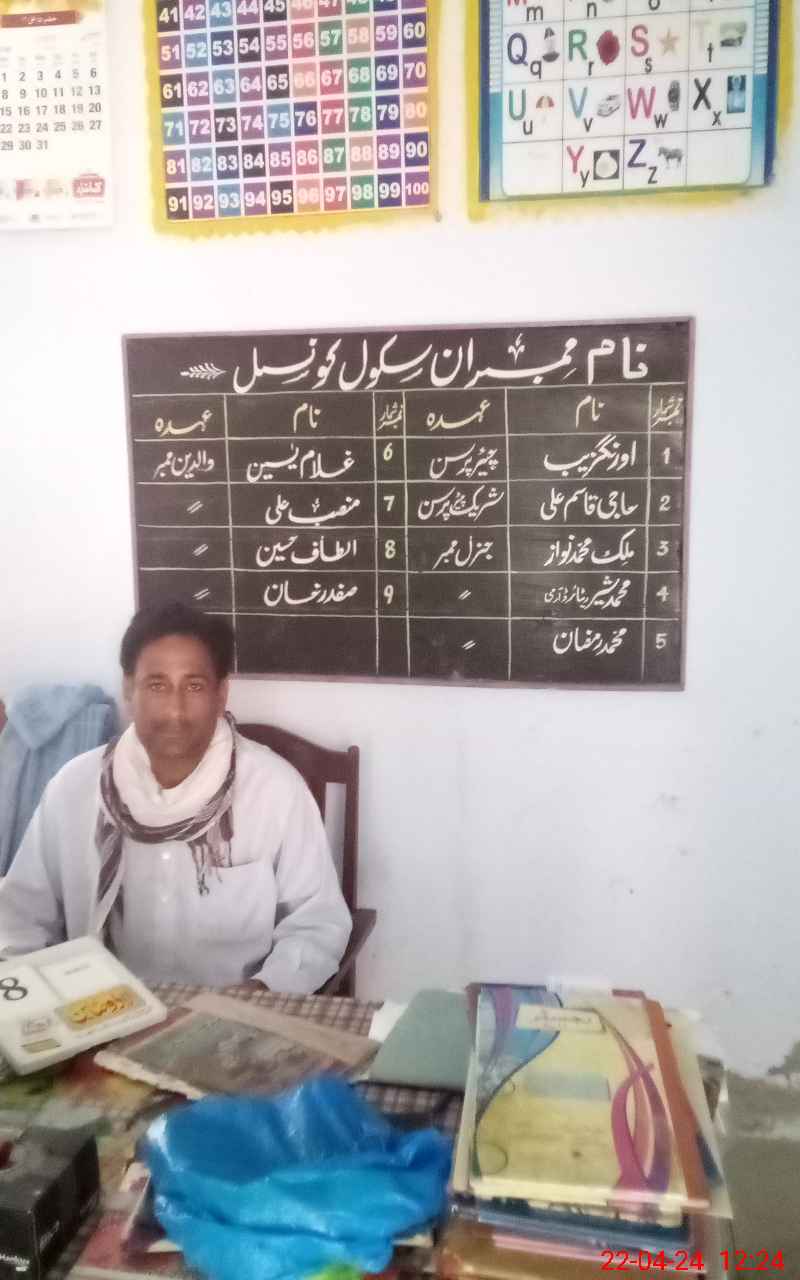 1 2 3 4 5 6
8 9 10 11 12 13
15 16 17 18 19 20
22 23 24 25 26 27
29 30 31
41 42 43 44 45 46 47 48 49
51 52 53 54 55 56 57 58 59 60
61 62 63 64 65 66 67 68 69 70
71 72 73 74 75 76 77 78 79 80
81 82 83 84 85 86 87 88 89 90
91 92 93 94 95 96 97 98 99 100
m n o
Q q R r S s T t
U u V v W w X x
Y y Z z
نام ممبران سکول کونسل
نمبر شمار نام عہدہ نمبر شمار نام عہدہ
1 اورنگزیب چیئرپرسن 6 غلام یٰسین والدین ممبر
2 حاجی قاسم علی شریک چیئرپرسن 7 منصب علی 〃
3 ملک محمد نواز جنرل ممبر 8 الطاف حسین 〃
4 محمد بشیر ریٹائرڈ آرمی 〃 9 صفدر خان 〃
5 محمد رمضان 〃
8
رجسٹر
22-04-24 12:24